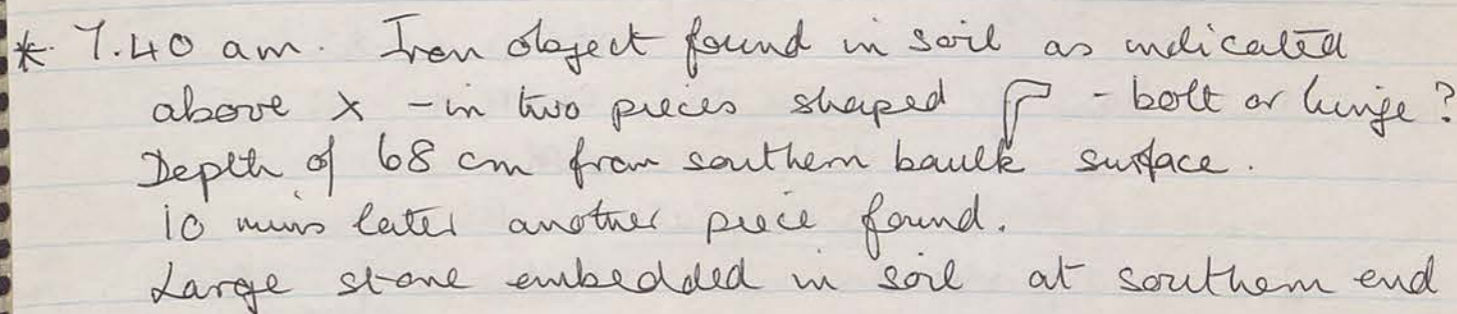 * 7.40 am. Iron object found in soil as indicated
above x - in two pieces shaped - bolt or hinge?
Depth of 68 cm from southern baulk surface.
10 mins later another piece found.
Large stone embedded in soil at southern end